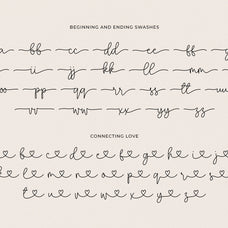 BEGINNING AND ENDING SWASHES
a bb cc dd ee ff
ii jj kk ll mm
oo pp qq rr ss tt uu
vv ww xx yy zz
CONNECTING LOVE
b c d e f g h i j
l m n o p q r s
t u v w x y z